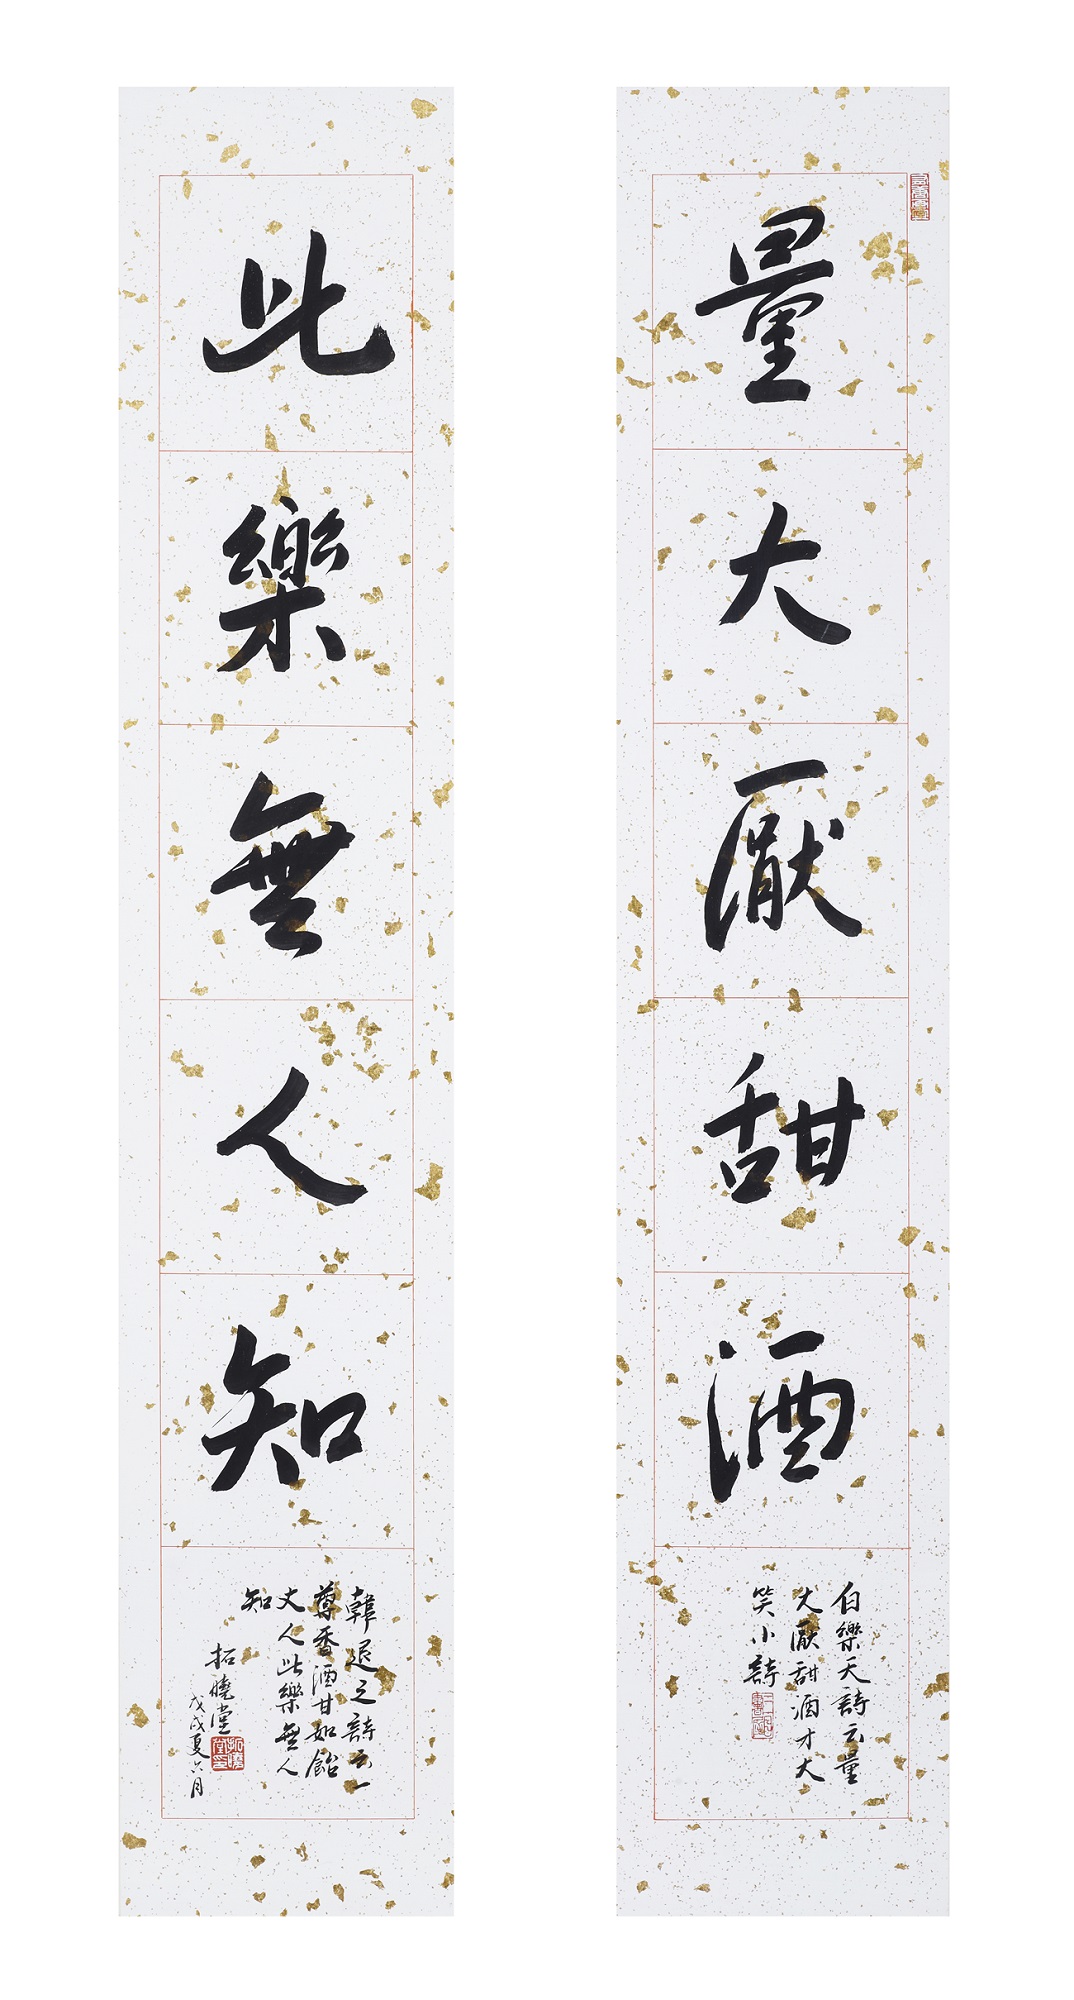 量大厭甜酒
白樂天詩云量
大厭甜酒才大
笑小詩
此樂無人知
韓退之詩云一
尊香酒甘如飴
丈人此樂無人
知
拓曉堂
戊戌夏六月
拓曉堂印